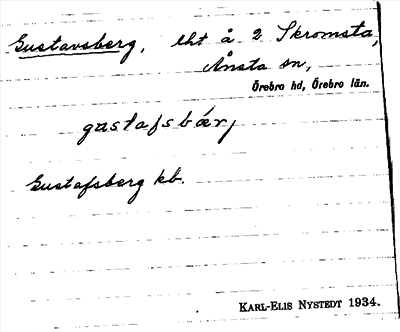 Gustavsberg, lht å 2 Skromsta,
Ånsta sn,
Örebro hd, Örebro län.
gustafsbær,
Gustafsberg kb.
KARL-ELIS NYSTEDT 1934.